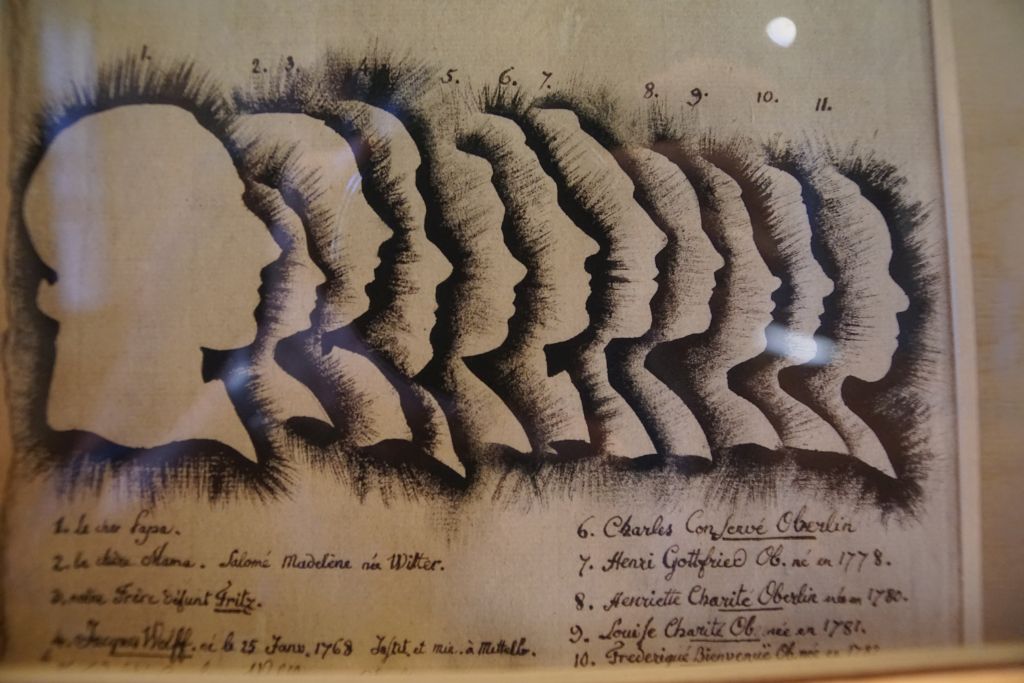 1. 2. 3. 4. 5. 6. 7. 8. 9. 10. 11.
1. Le cher Papa.
2. la chère Mama. Salomé Madelène née Witter.
3. notre Frère défunt Fritz.
4. Jacques Wolff. né le 25 Janv. 1768 Instit. et min. à
6. Charles Conservé Oberlin
7. Henri Gottfried Ob. né en 1778.
8. Henriette Charité Oberlin née en 1780.
9. Louise Charité Ob. née en 1781.
10. Frederique Bienvenuë Ob. née en